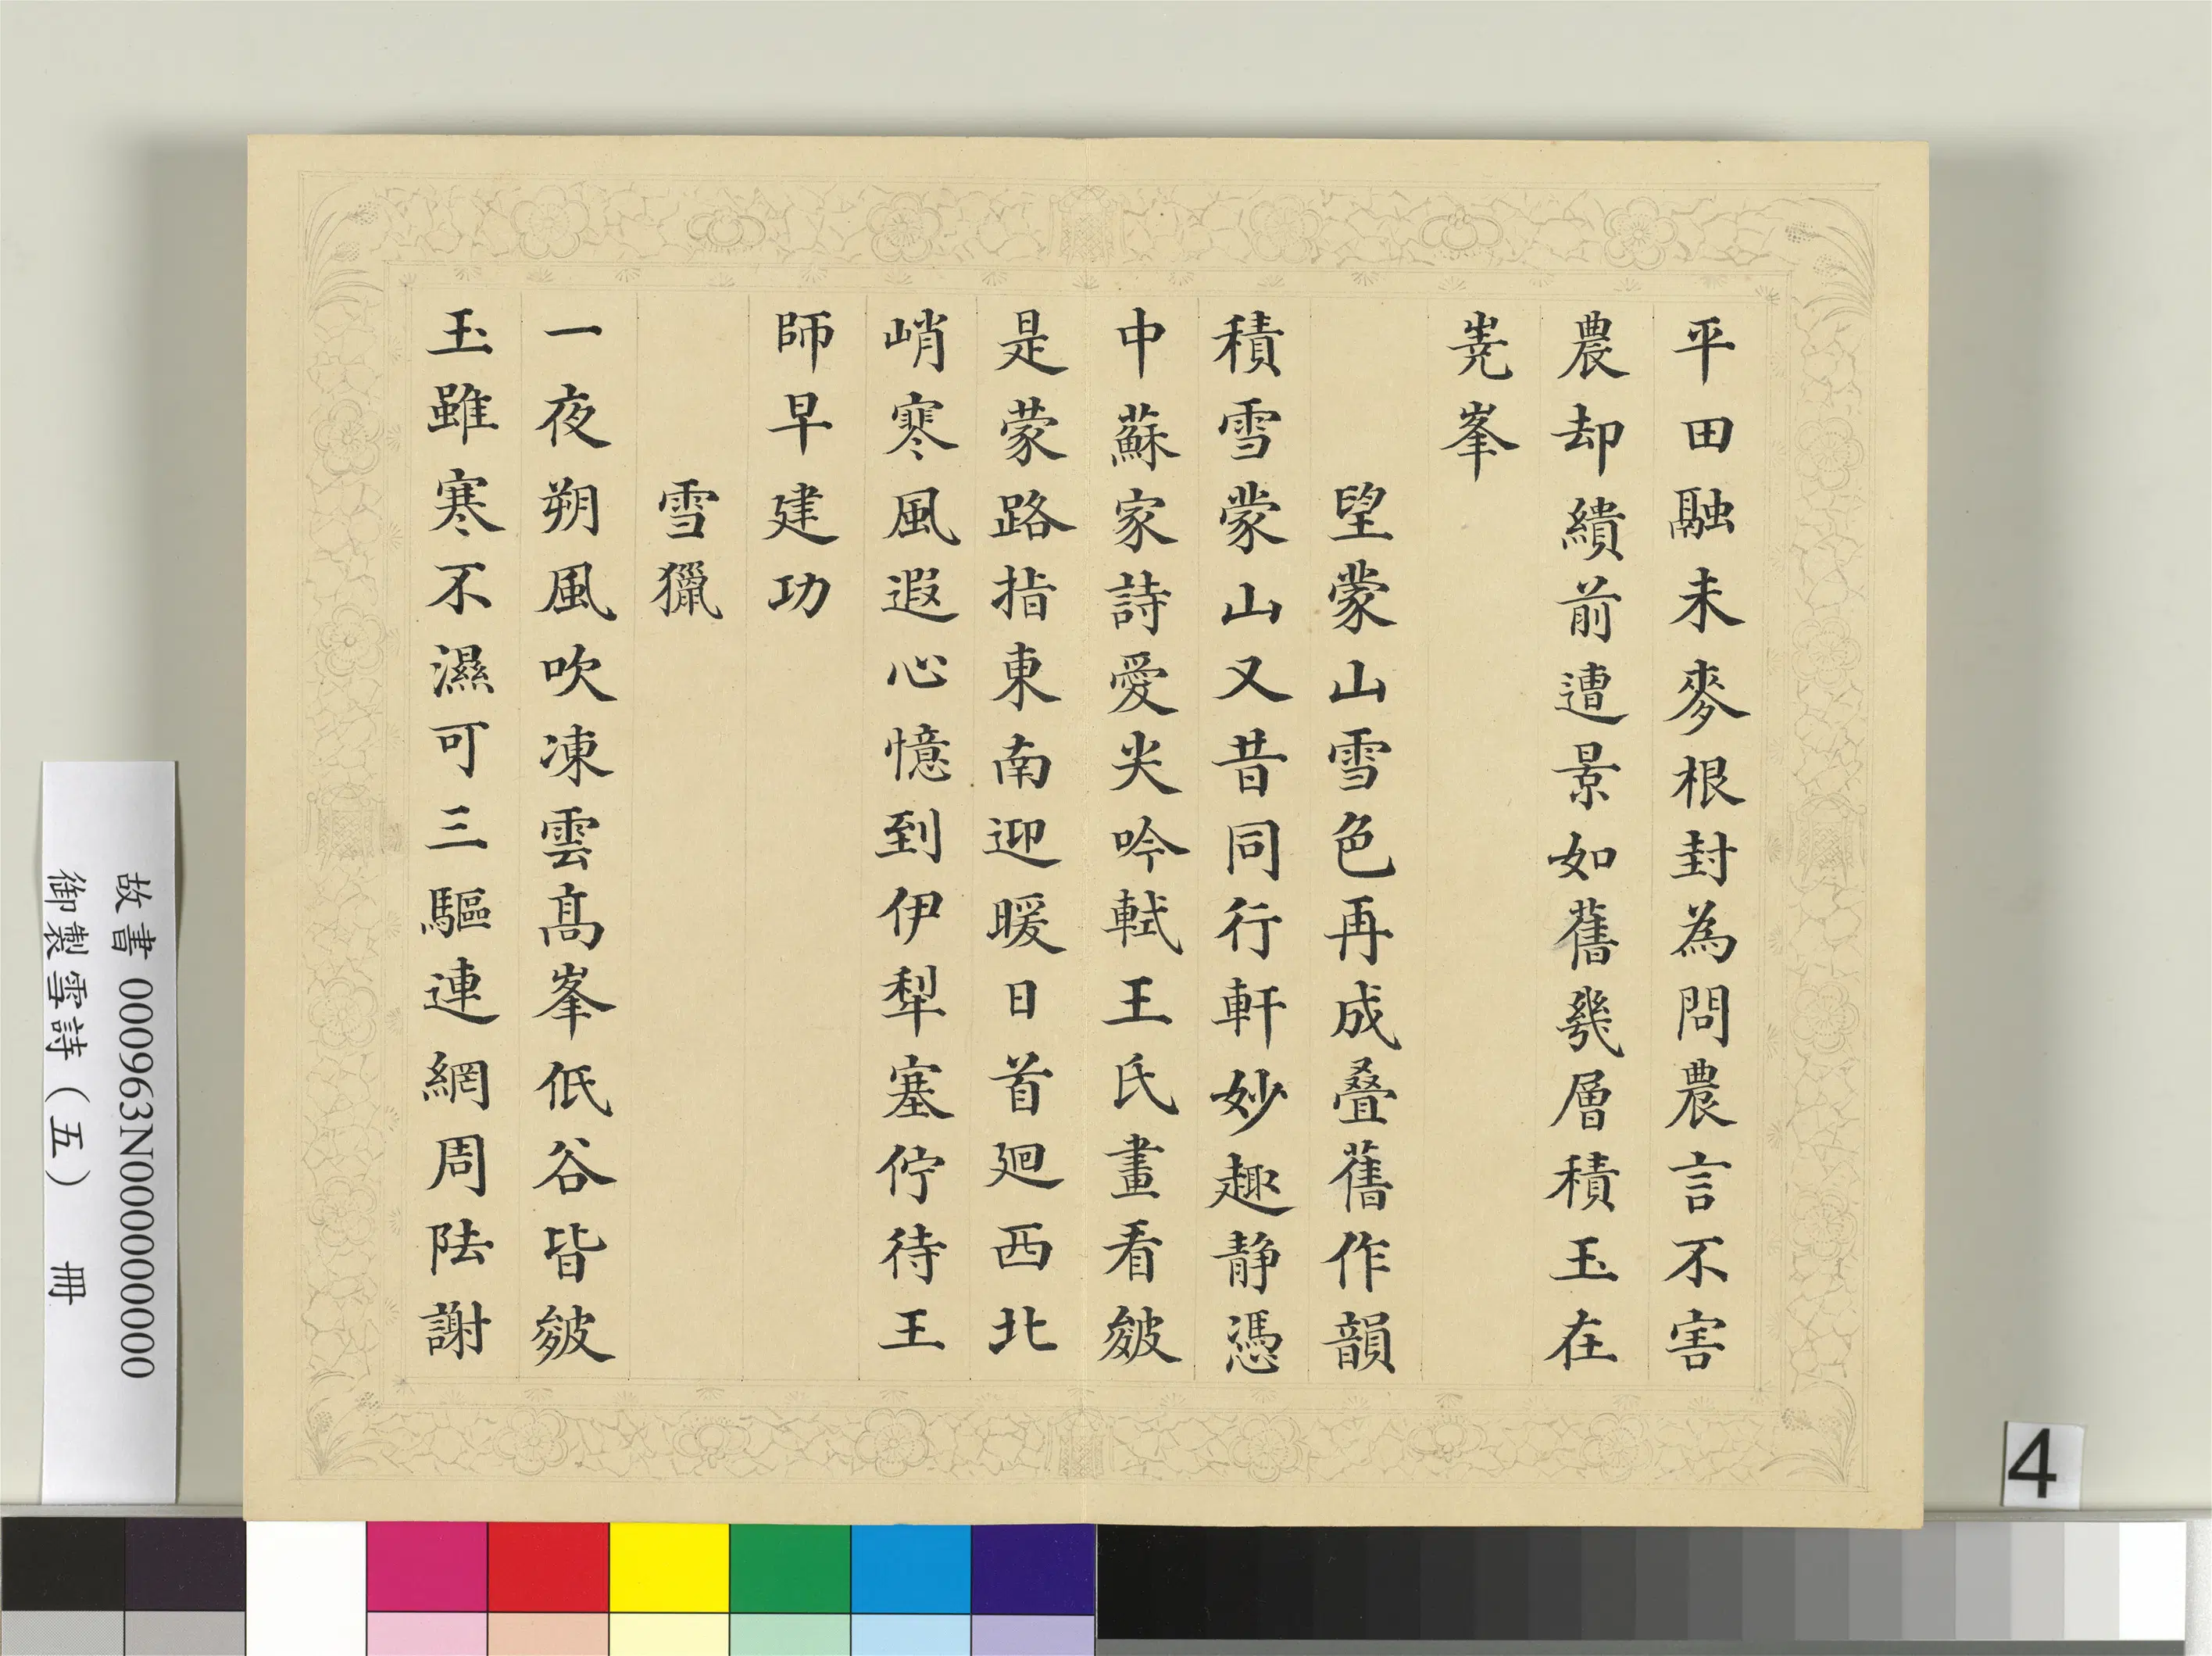 平田融未麥根封為問農言不害
農却繢前遭景如舊幾層積玉在
嶤峯
望蒙山雪色再成叠舊作韻
積雪蒙山又昔同行軒妙趣静憑
中蘇家詩愛尖吟軾王氏畫看皴
是蒙路指東南迎暖日首廻西北
峭寒風遐心憶到伊犁塞佇待王
師早建功
雪獵
一夜朔風吹凍雲髙峯低谷皆皴
玉雖寒不濕可三驅連網周阹謝
故書 000963N000000000
御製雪詩（五） 冊
4